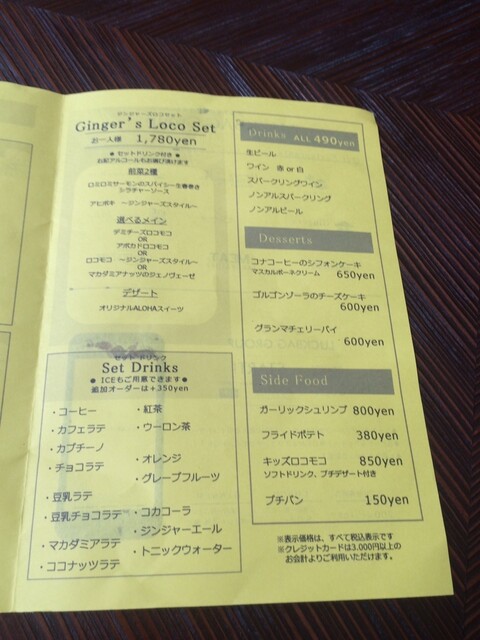 ジンジャーズロコセット
Ginger's Loco Set
お一人様 1,780yen
● セットドリンク付き ●
右記アルコールもお選び頂けます
前菜2種
ロミロミサーモンのスパイシー生春巻き
シラチャーソース
アヒポキ ～ジンジャーズスタイル～
選べるメイン
デミチーズロコモコ
OR
アボカドロコモコ
OR
ロコモコ ～ジンジャーズスタイル～
OR
マカダミアナッツのジェノヴェーゼ
デザート
オリジナルALOHAスイーツ
セットドリンク
Set Drinks
● ICEもご用意できます●
追加オーダーは+350yen
・コーヒー
・カフェラテ
・カプチーノ
・チョコラテ
・豆乳ラテ
・豆乳チョコラテ
・マカダミアラテ
・ココナッツラテ
・紅茶
・ウーロン茶
・オレンジ
・グレープフルーツ
・コカコーラ
・ジンジャーエール
・トニックウォーター
Drinks ALL 490yen
生ビール
ワイン 赤 or 白
スパークリングワイン
ノンアルスパークリング
ノンアルビール
Desserts
コナコーヒーのシフォンケーキ
マスカルポーネクリーム 650yen
ゴルゴンゾーラのチーズケーキ
600yen
グランマチェリーパイ
600yen
Side Food
ガーリックシュリンプ 800yen
フライドポテト 380yen
キッズロコモコ 850yen
ソフトドリンク、プチデザート付き
プチパン 150yen
※表示価格は、すべて税込表示です
※クレジットカードは3,000円以上の
お会計よりご利用いただけます。